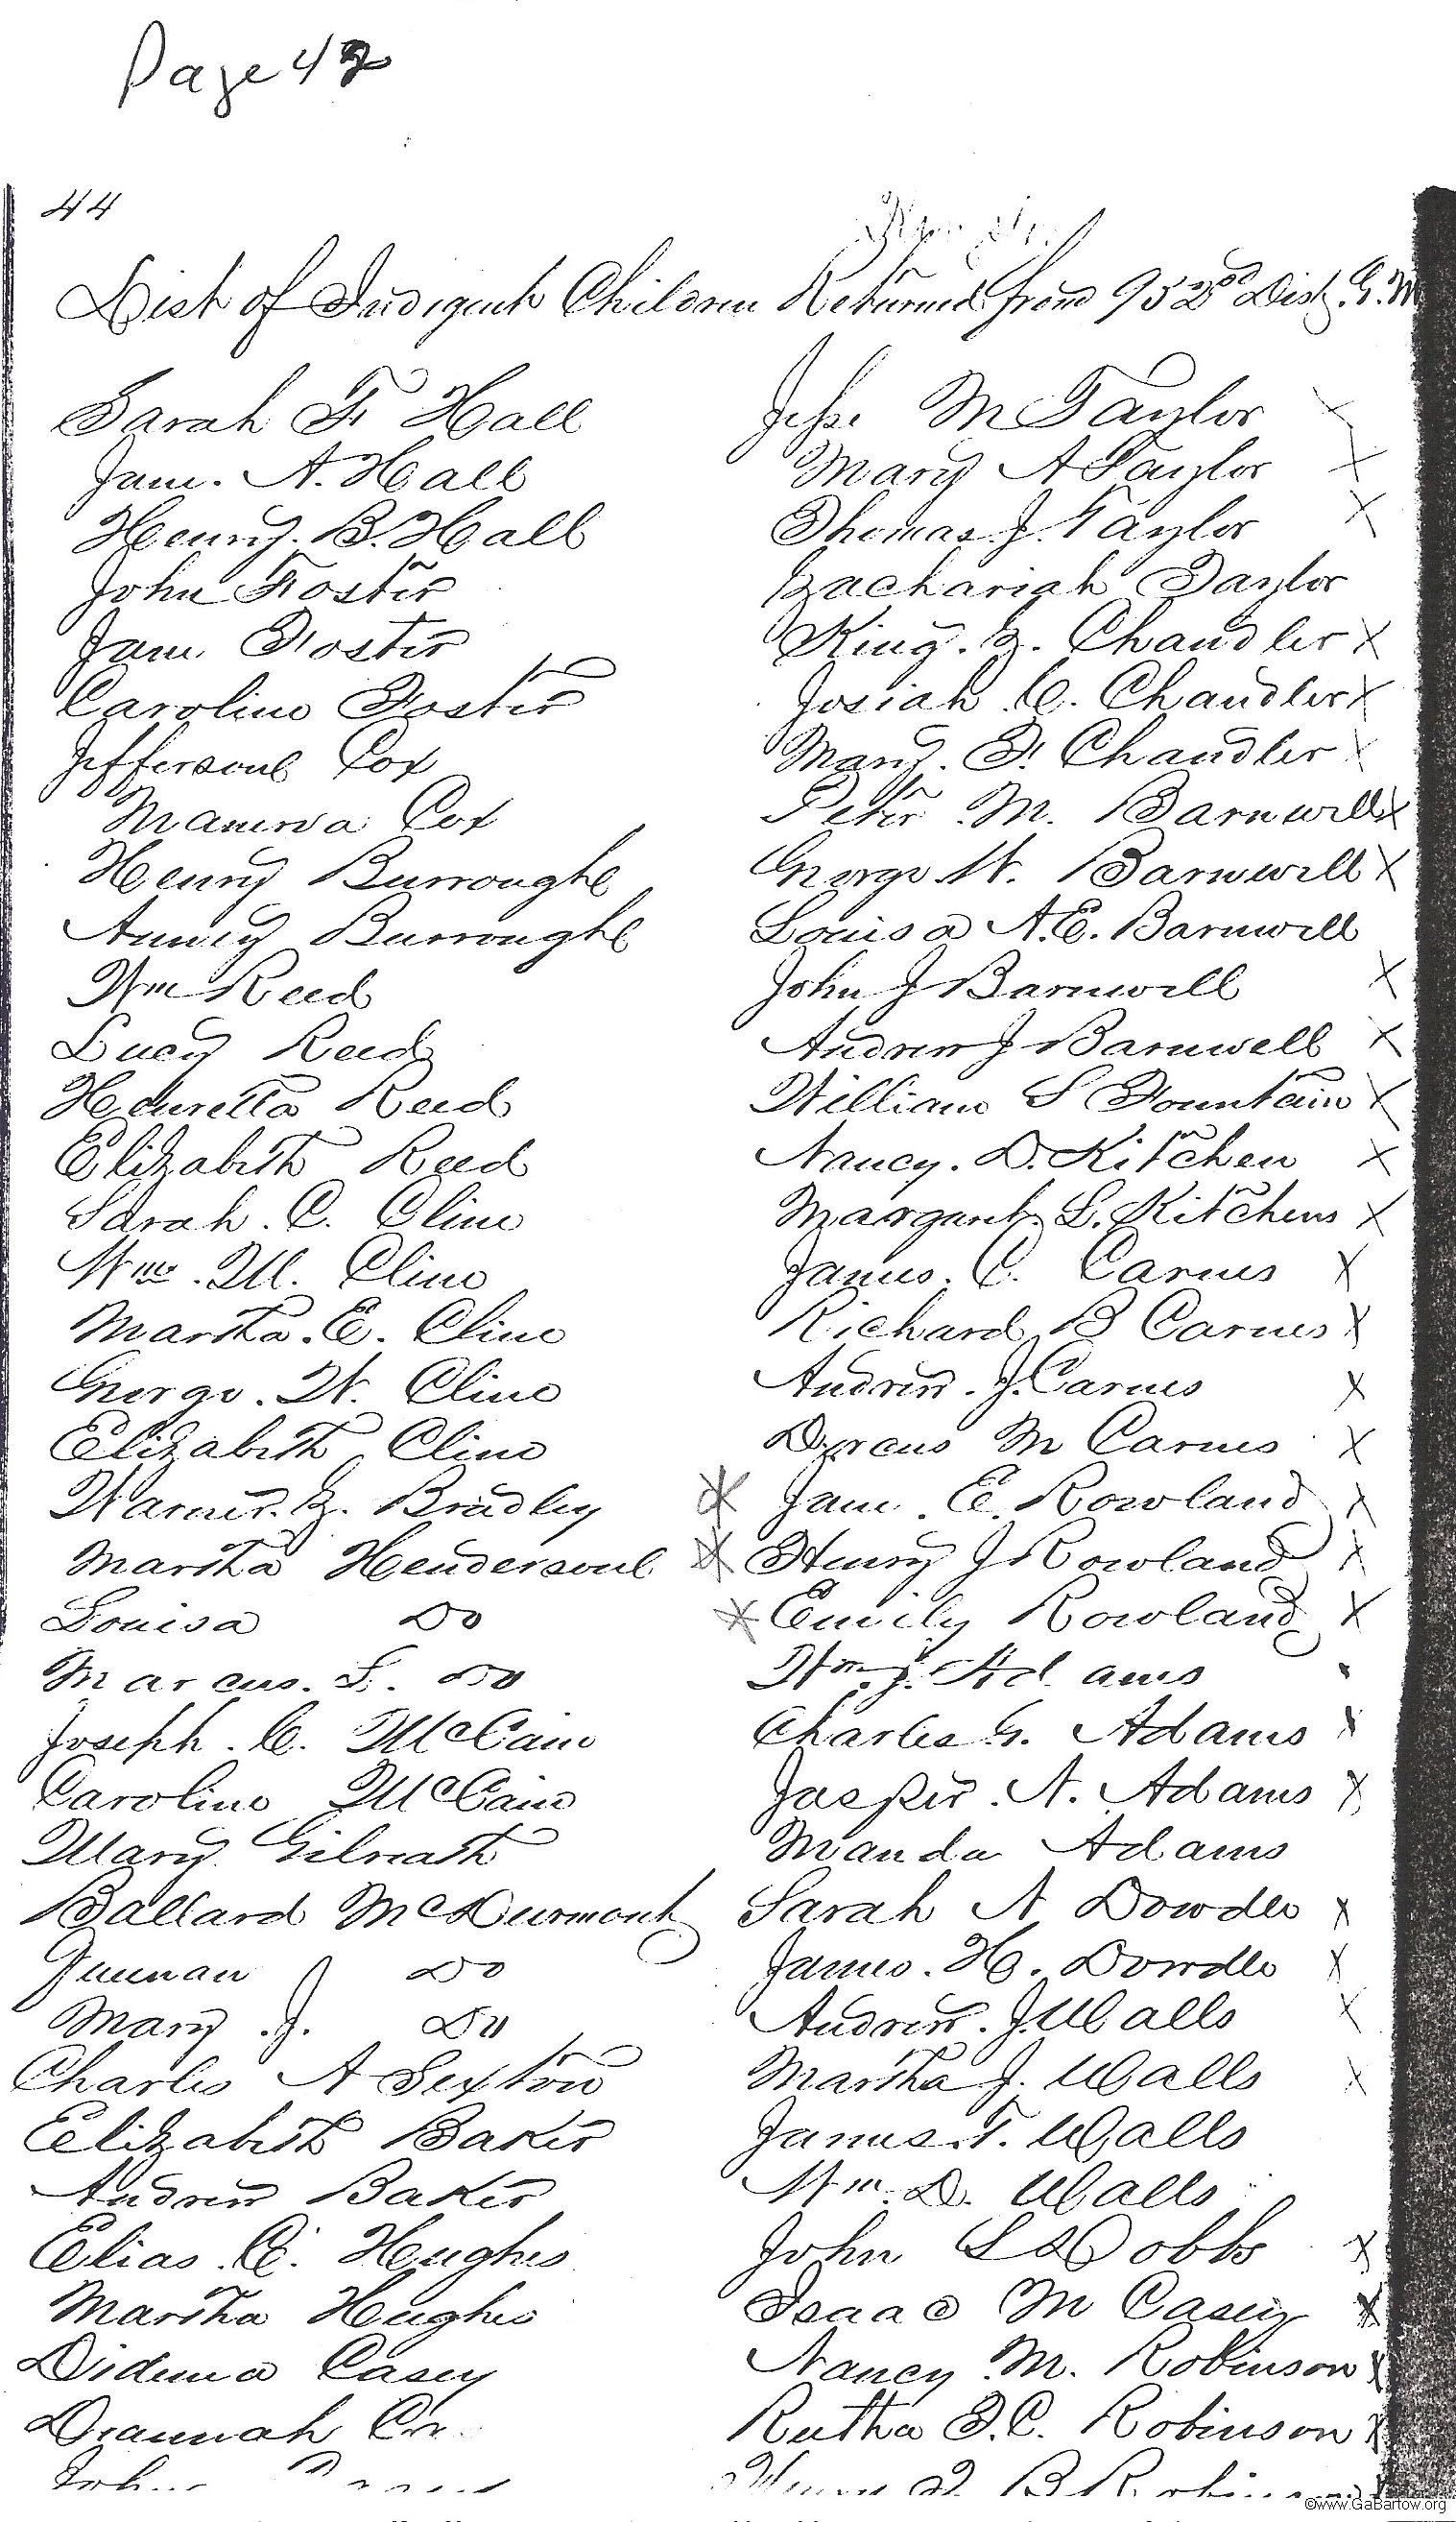 Page 42
44
List of Indigent Children Returned from 952d Dist. G. M
Sarah F Hall
Jane. A. Hall
Henry. B. Hall
John Foster
Jane Foster
Caroline Foster
Jefferson Cox
Manerva Cox
Henry Burroughs
Burroughs
Wm Reed
Lucy Reed
Henretta Reed
Elizabeth Reed
Sarah. C. Cline
Wm. M. Cline
Martha. E. Cline
George. W. Cline
Elizabeth Cline
Warner. Z. Bradley
Martha Henderson
Louisa Do
Marcus. S. Do
Joseph. C. McCain
Caroline McCain
Mary Gilreath
Ballard McDurmont
Do
Mary. J. Do
Charles A Sexton
Elizabeth Baker
Andrew Baker
Elias. C. Hughes
Martha Hughes
Didema Casey
Diannah
Jesse M Taylor X
Mary A Taylor X
Thomas J. Taylor X
Zachariah Taylor
King. Z. Chandler X
Josiah C. Chandler X
Mary. F. Chandler X
Peter M. Barnwell X
George W. Barnwell X
Louisa A. E. Barnwell
John J Barnwell X
Andrew J Barnwell X
William S Fountain X
Nancy. D. Kitchen X
Margaret L. Kitchens X
James. C. Carnes X
Richard B Carnes X
Andrew. J. Carnes X
Dorcus M Carnes X
* Jane E Rowland X
* Henry J Rowland X
* Emily Rowland X
Wm. J. Adams
Charles G. Adams X
Jasper. N. Adams X
Manda Adams
Sarah A Dowdle X
James. H. Dowdle X
Andrew. J. Walls X
Martha J. Walls X
James. T. Walls
Wm. D. Walls
John L Dobbs X
Isaac M Casey X
Nancy M. Robinson X
Rutha E. C. Robinson X
©www.GaBartow.org